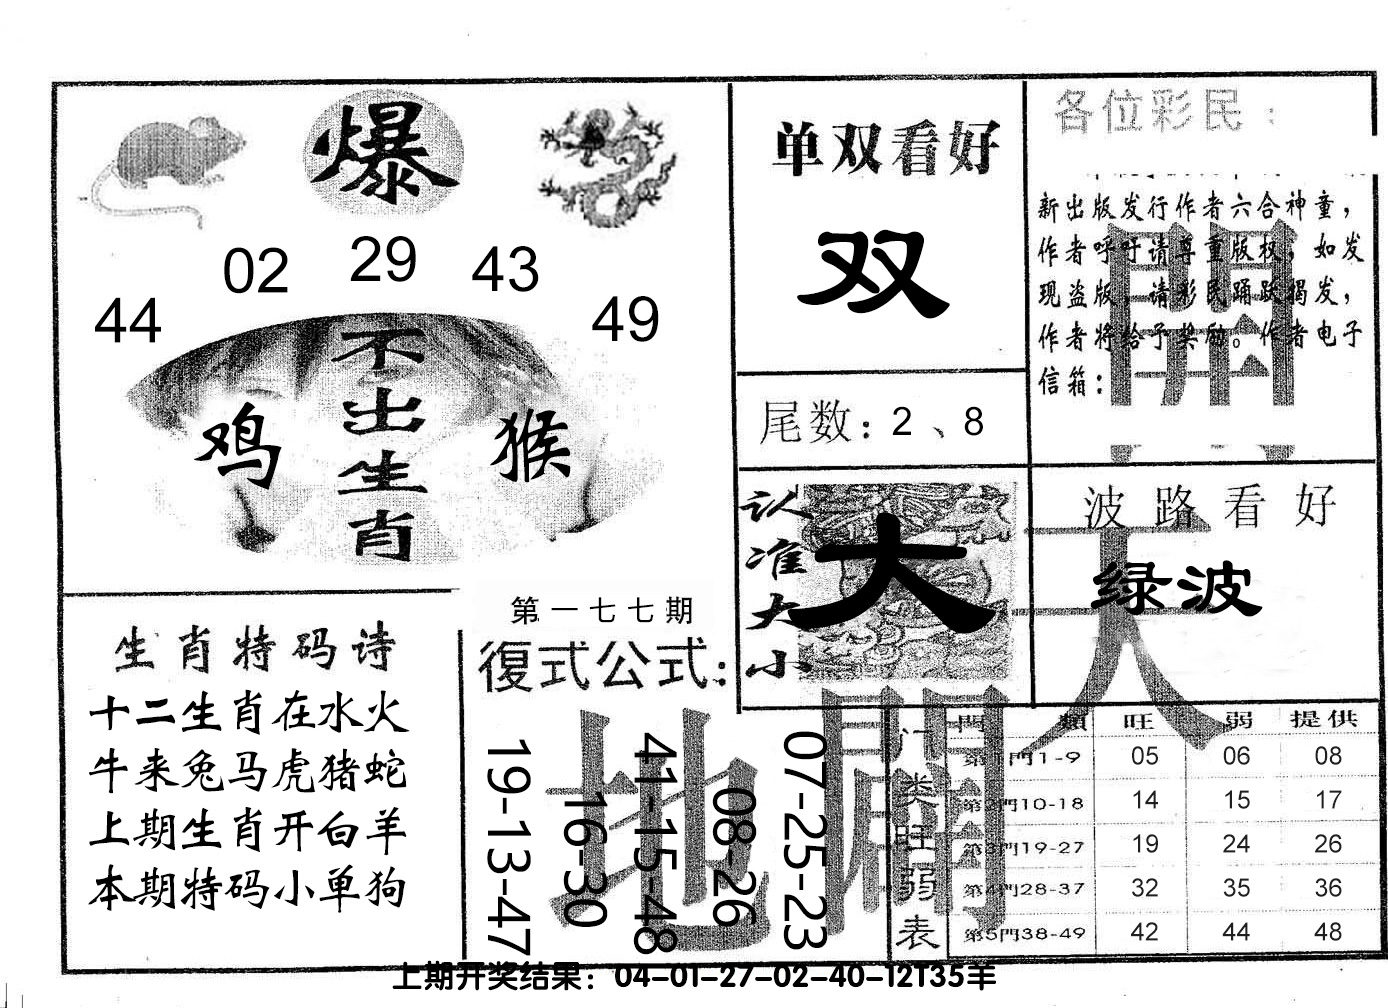 爆
44
02
29
43
49
不出生肖
鸡
猴
生肖特码诗
十二生肖在水火
牛来兔马虎猪蛇
上期生肖开白羊
本期特码小单狗
第一七七期
復式公式:
19-13-47
16-30
41-15-48
08-26
07-25-23
单双看好
双
尾数: 2、8
认准大小
大
各位彩民:
新出版发行作者六合神童,
作者呼吁请尊重版权, 如发
现盗版, 请彩民踊跃揭发,
作者将给予奖励。作者电子
信箱:
波路看好
绿波
天
地
门类旺弱表
門類 旺 弱 提供
第1門1-9 05 06 08
第2門10-18 14 15 17
第3門19-27 19 24 26
第4門28-37 32 35 36
第5門38-49 42 44 48
上期开奖结果: 04-01-27-02-40-12T35羊